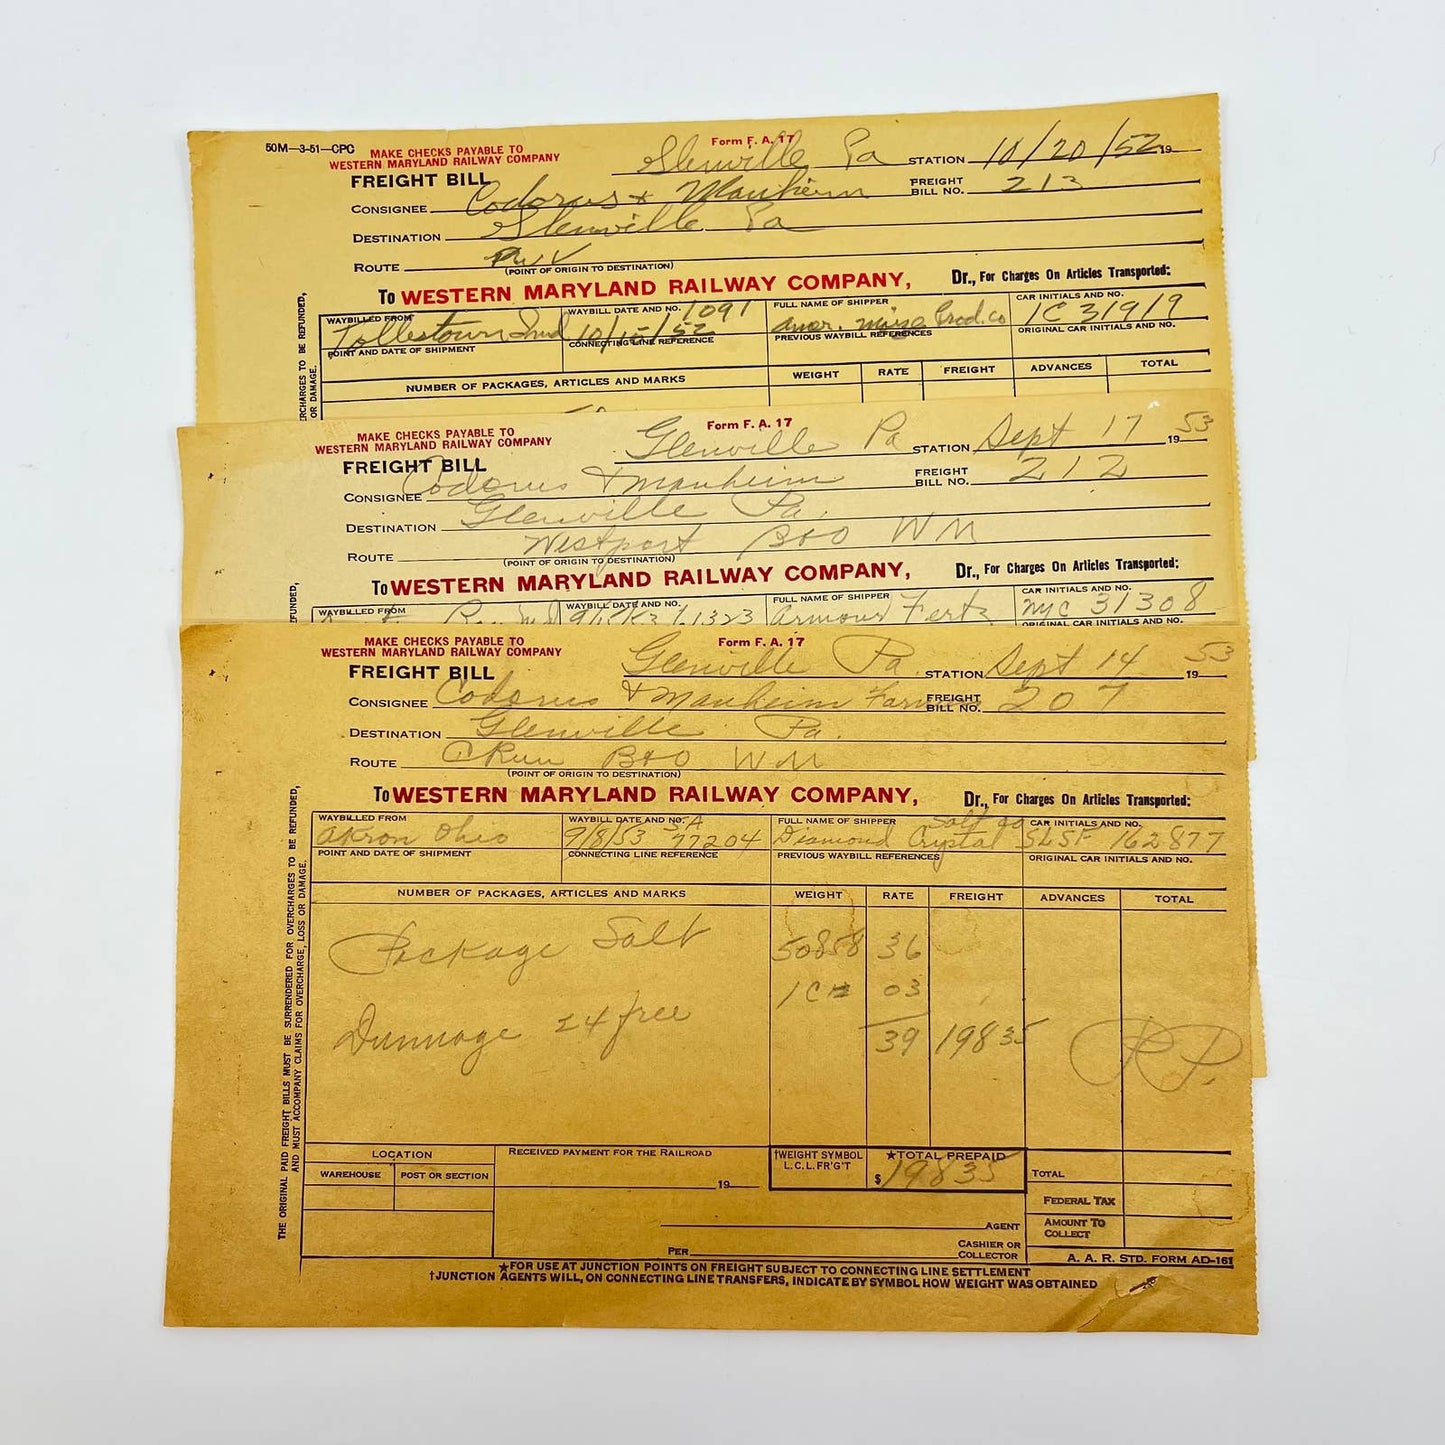 50M—3-51—CPC
MAKE CHECKS PAYABLE TO
WESTERN MARYLAND RAILWAY COMPANY
Form F. A. 17
Glenville Pa STATION 10/20/52 19
FREIGHT BILL
CONSIGNEE Codorus & Manheim FREIGHT BILL NO. 213
DESTINATION Glenville Pa
ROUTE
(POINT OF ORIGIN TO DESTINATION)
To WESTERN MARYLAND RAILWAY COMPANY, Dr., For Charges On Articles Transported:
WAYBILLED FROM WAYBILL DATE AND NO. 1091 FULL NAME OF SHIPPER CAR INITIALS AND NO.
Tollestown Ind 10/15/52 Amer. Maize Prod. co IC 31919
POINT AND DATE OF SHIPMENT CONNECTING LINE REFERENCE PREVIOUS WAYBILL REFERENCES ORIGINAL CAR INITIALS AND NO.
NUMBER OF PACKAGES, ARTICLES AND MARKS WEIGHT RATE FREIGHT ADVANCES TOTAL
RCHARGES TO BE REFUNDED,
OR DAMAGE.
MAKE CHECKS PAYABLE TO
WESTERN MARYLAND RAILWAY COMPANY
Form F. A. 17
Glenville Pa STATION Sept 17 19 53
FREIGHT BILL
CONSIGNEE Codorus & Manheim FREIGHT BILL NO. 212
DESTINATION Glenville Pa.
ROUTE Westport B&O WM
(POINT OF ORIGIN TO DESTINATION)
To WESTERN MARYLAND RAILWAY COMPANY, Dr., For Charges On Articles Transported:
WAYBILLED FROM WAYBILL DATE AND NO. FULL NAME OF SHIPPER CAR INITIALS AND NO.
Armour Fertz NYC 31308
ORIGINAL CAR INITIALS AND NO.
FUNDED,
MAKE CHECKS PAYABLE TO
WESTERN MARYLAND RAILWAY COMPANY
Form F. A. 17
Glenville Pa. STATION Sept 14 19 53
FREIGHT BILL
CONSIGNEE Codorus & Manheim Farm FREIGHT BILL NO. 207
DESTINATION Glenville Pa.
ROUTE C Run B&O WM
(POINT OF ORIGIN TO DESTINATION)
To WESTERN MARYLAND RAILWAY COMPANY, Dr., For Charges On Articles Transported:
WAYBILLED FROM WAYBILL DATE AND NO. SA FULL NAME OF SHIPPER Salt co CAR INITIALS AND NO.
Akron Ohio 9/8/53 77204 Diamond Crystal SLSF 162877
POINT AND DATE OF SHIPMENT CONNECTING LINE REFERENCE PREVIOUS WAYBILL REFERENCES ORIGINAL CAR INITIALS AND NO.
NUMBER OF PACKAGES, ARTICLES AND MARKS WEIGHT RATE FREIGHT ADVANCES TOTAL
Package Salt 50858 36
IC 03
Dunnage 24 free
39 198 35 PP.
THE ORIGINAL PAID FREIGHT BILLS MUST BE SURRENDERED FOR OVERCHARGES TO BE REFUNDED,
AND MUST ACCOMPANY CLAIMS FOR OVERCHARGE, LOSS OR DAMAGE.
LOCATION RECEIVED PAYMENT FOR THE RAILROAD †WEIGHT SYMBOL L.C.L. FR'G'T ★TOTAL PREPAID
WAREHOUSE POST OR SECTION 19 $198 35 TOTAL
FEDERAL TAX
AGENT AMOUNT TO COLLECT
PER CASHIER OR COLLECTOR
A. A. R. STD. FORM AD-161
★FOR USE AT JUNCTION POINTS ON FREIGHT SUBJECT TO CONNECTING LINE SETTLEMENT
†JUNCTION AGENTS WILL, ON CONNECTING LINE TRANSFERS, INDICATE BY SYMBOL HOW WEIGHT WAS OBTAINED